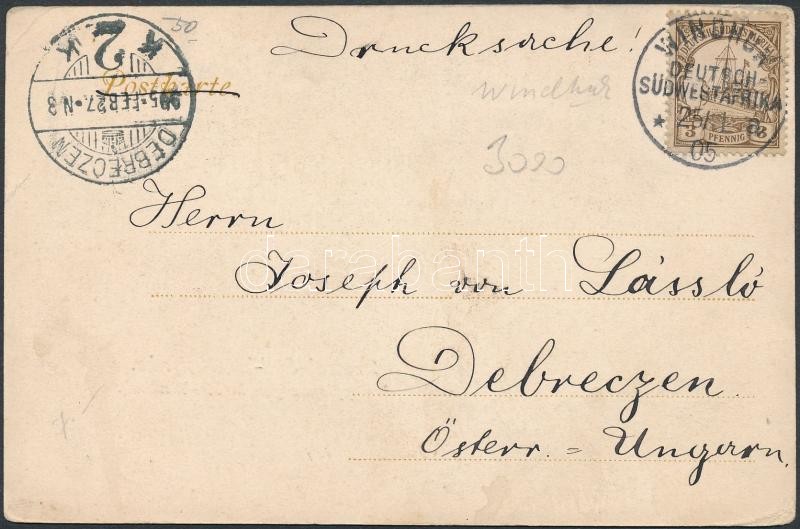 Drucksache!
Postkarte
50
WINDHUK
DEUTSCH-
SÜDWESTAFRIKA
25/1 a
05
3 PFENNIG 3
905 FEB 27 N3
DEBRECZEN
2
K K
3020
Herrn
Joseph von László
Debreczen
Österr. = Ungarn.
darabanth